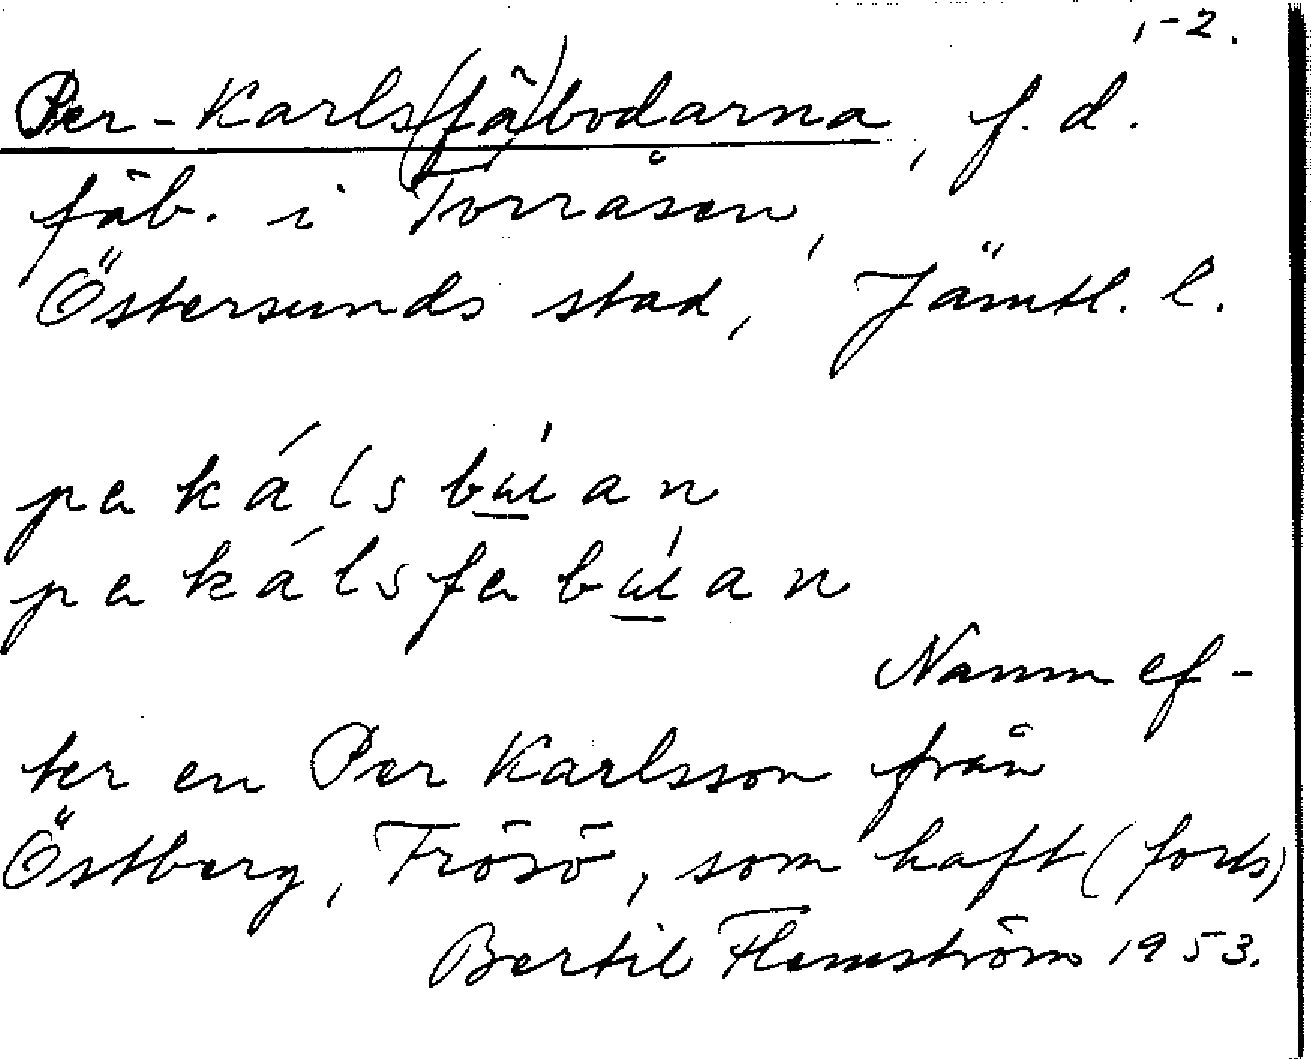 1-2.
Per-Karls(fä)bodarna, f. d.
fäb. i Torråsen,
Östersunds stad, Jämtl. l.
pa kálsbúan
pa kálsfabúan
Namn ef-
ter en Per Karlsson från
Östberg, Frösö, som haft (forts)
Bertil Flemström 1953.